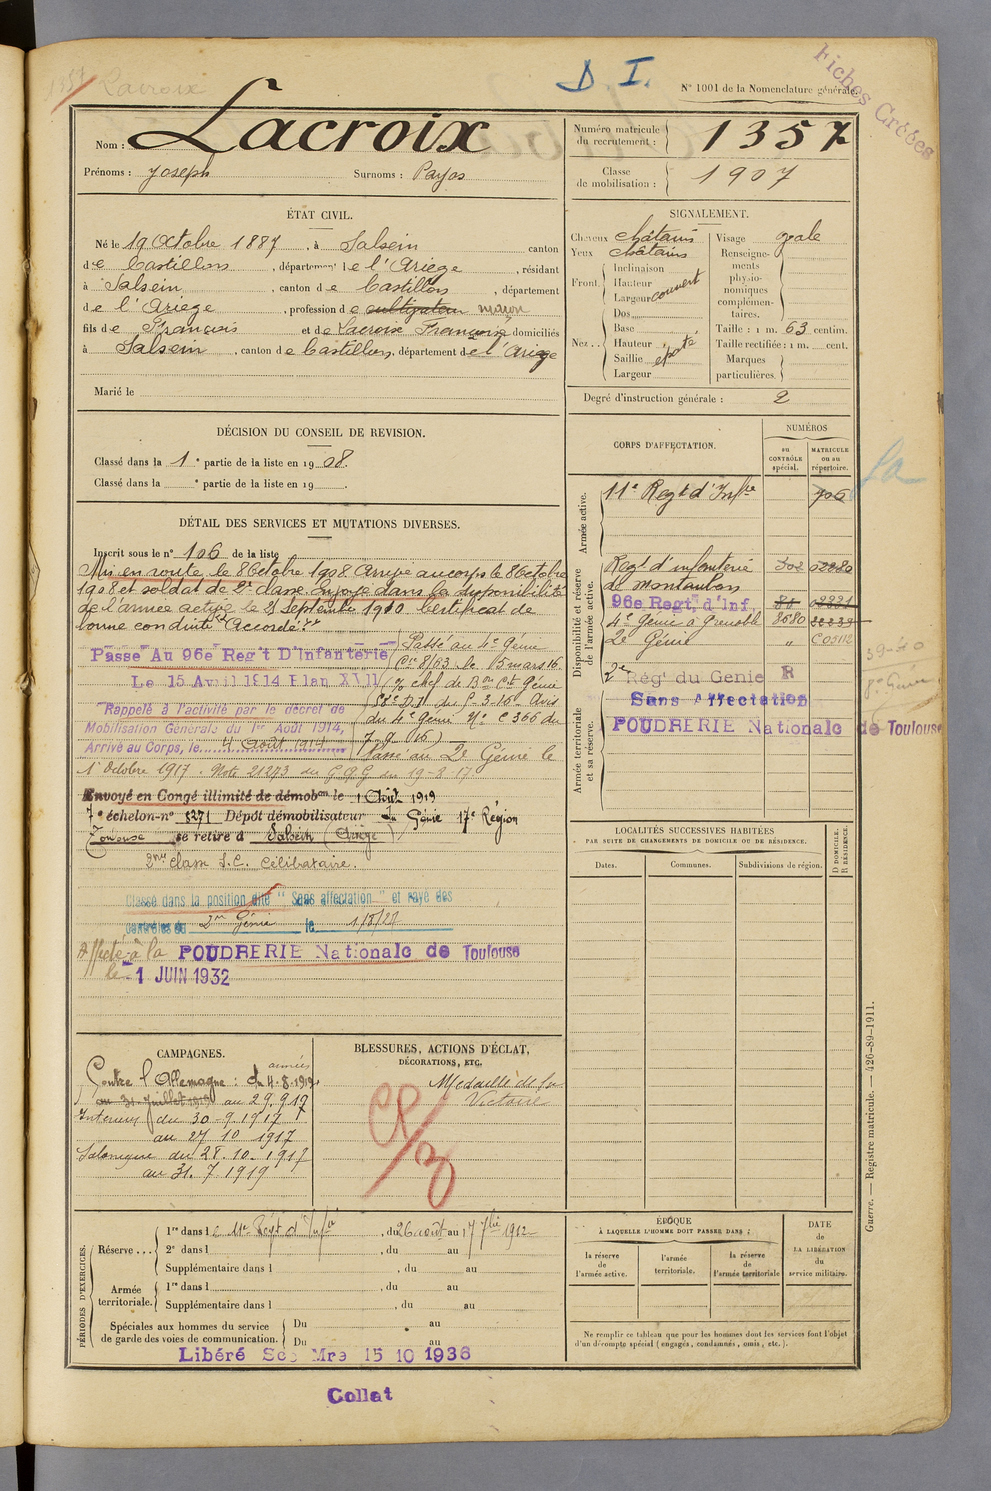 1357 Lacroix
D I.
N° 1001 de la Nomenclature générale.
Fiches Créées
Nom : Lacroix
Prénoms : Joseph Surnoms : Payas
Numéro matricule du recrutement : 1357
Classe de mobilisation : 1907
ÉTAT CIVIL.
Né le 19 Octobre 1887, à Salsein canton
de Castillon, département de l'Ariège, résidant
à Salsein, canton de Castillon, département
de l'Ariège, profession de cultivateur maçon
fils de François et de Lacroix Françoise domiciliés
à Salsein, canton de Castillon, département de l'Ariège
Marié le
SIGNALEMENT.
Cheveux châtains
Yeux châtains
Front. Inclinaison
Hauteur
Largeur couvert
Nez.. Dos
Base
Hauteur
Saillie épaté
Largeur
Visage ovale
Renseignements physionomiques complémentaires.
Taille : 1 m. 63 centim.
Taille rectifiée : 1 m. cent.
Marques particulières.
Degré d'instruction générale : 2
DÉCISION DU CONSEIL DE REVISION.
Classé dans la 1e partie de la liste en 1908.
Classé dans la e partie de la liste en 19 .
CORPS D'AFFECTATION.
NUMÉROS
au CONTRÔLE spécial.
MATRICULE ou au répertoire.
Armée active.
11e Regt d'Infrie 706
Disponibilité et réserve de l'armée active.
Regt d'infanterie 302 02280
de Montauban
96e Regt. d'Inf.
4e Génie à Grenoble 8680
2e Génie " C05112
2e Rég' du Genie R
Sans Affectation
POUDRERIE Nationale de Toulouse
Armée territoriale et sa réserve.
39-40
DÉTAIL DES SERVICES ET MUTATIONS DIVERSES.
Inscrit sous le n° 106 de la liste
Mis en route le 8 Octobre 1908. Arrivé au corps le 8 Octobre
1908 et soldat de 2e classe. Envoyé dans la disponibilité
de l'armée active le 2 Septembre 1910. Certificat de
bonne conduite "Accordé".
Passé Au 96e Reg't D'Infanterie
Le 15 Avril 1914 Plan XVII
"Rappelé à l'activité par le décret de
Mobilisation Générale du 1er Août 1914,
Arrivé au Corps, le 4 Août 1914
Passé au 4e Génie
Cie 8/63 le 15 mars 16
du 4e Génie N° C 366 du
Passé au 2e Génie le
1e Octobre 1917. Note 21273 du G.Q.G du 19-8-17
Envoyé en Congé illimité de démobon le 1 Août 1919
7e échelon-n° 8271 Dépôt démobilisateur du Génie 17e Région
Toulouse se retire à Salsein (Ariège)
Célibataire.
Classé dans la position dite "Sans affectation" et rayé des
contrôles du 2me Génie le 1/8/27
Affecté à la POUDRERIE Nationale de Toulouse
le -1 JUIN 1932
LOCALITÉS SUCCESSIVES HABITÉES
PAR SUITE DE CHANGEMENTS DE DOMICILE OU DE RÉSIDENCE.
Dates. Communes. Subdivisions de région. D DOMICILE. R RÉSIDENCE.
CAMPAGNES.
Contre l'Allemagne : du 4.8.1914
armée
au 31 Juillet 1919 au 29.9.17
Intérieur du 30-9.1917
au 27 10 1917
Salonique du 28.10.1917
au 31.7.1919
BLESSURES, ACTIONS D'ÉCLAT,
DÉCORATIONS, ETC.
Médaille de la
Victoire
PÉRIODES D'EXERCICES.
Réserve... 1re dans le 11e Régt d'Infie, du 26 août au 17 7bre 1912
2e dans l , du au
Supplémentaire dans l , du au
Armée territoriale. 1re dans l , du au
Supplémentaire dans l , du au
Spéciales aux hommes du service de garde des voies de communication. Du au
Du au
Libéré Sce Mre 15 10 1936
Collat
ÉPOQUE
À LAQUELLE L'HOMME DOIT PASSER DANS :
la réserve de l'armée active.
l'armée territoriale.
la réserve de l'armée territoriale
DATE de LA LIBÉRATION du service militaire.
Ne remplir ce tableau que pour les hommes dont les services font l'objet
d'un décompte spécial (engagés, condamnés, omis, etc.).
Guerre. — Registre matricule. — 426-89-1911.